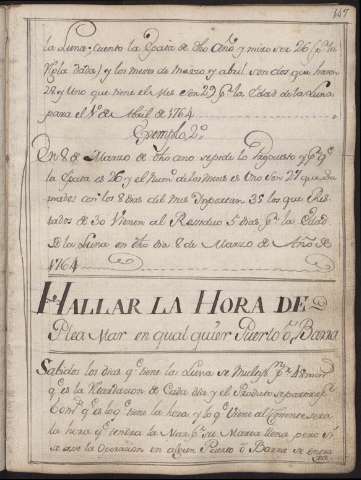 147
la Luna, cuento la Epacta de dho Año, y miro ser 26 pr la
Regla dada) y los meses de Marzo, y abril son dos que hacen
28 y Uno que tiene el Mes son 29 pr la Edad de la Luna
para el 1º de Abril de 1764
Exemplo 2º
En 8 de Marzo de dho ano se pide lo Propuesto y pr qe
la Epacta es 26 y el num.º de los meses es Uno son 27 que Su
mados con los 8 dias del mes Importan 35 los que Res
tados de 30 Vienen al Residuo 5 dias pr la Edad
de la Luna en dho dia 8 de Marzo de Año de
1764
HALLAR LA HORA DE
Plea Mar en qual quier Puerto ó Barra
Sabidos los dias qe tiene la Luna se Multepn pr 48
qe es la Retardacion de Cada dia y el Producto se parte pr
60 mos qe es lo qe tiene la hora y lo qe Viene al Cociente sera
la hora qe tendra la Mar pr su Marea llena pero si
se use la Operacion en algun Puerto ó Barra se